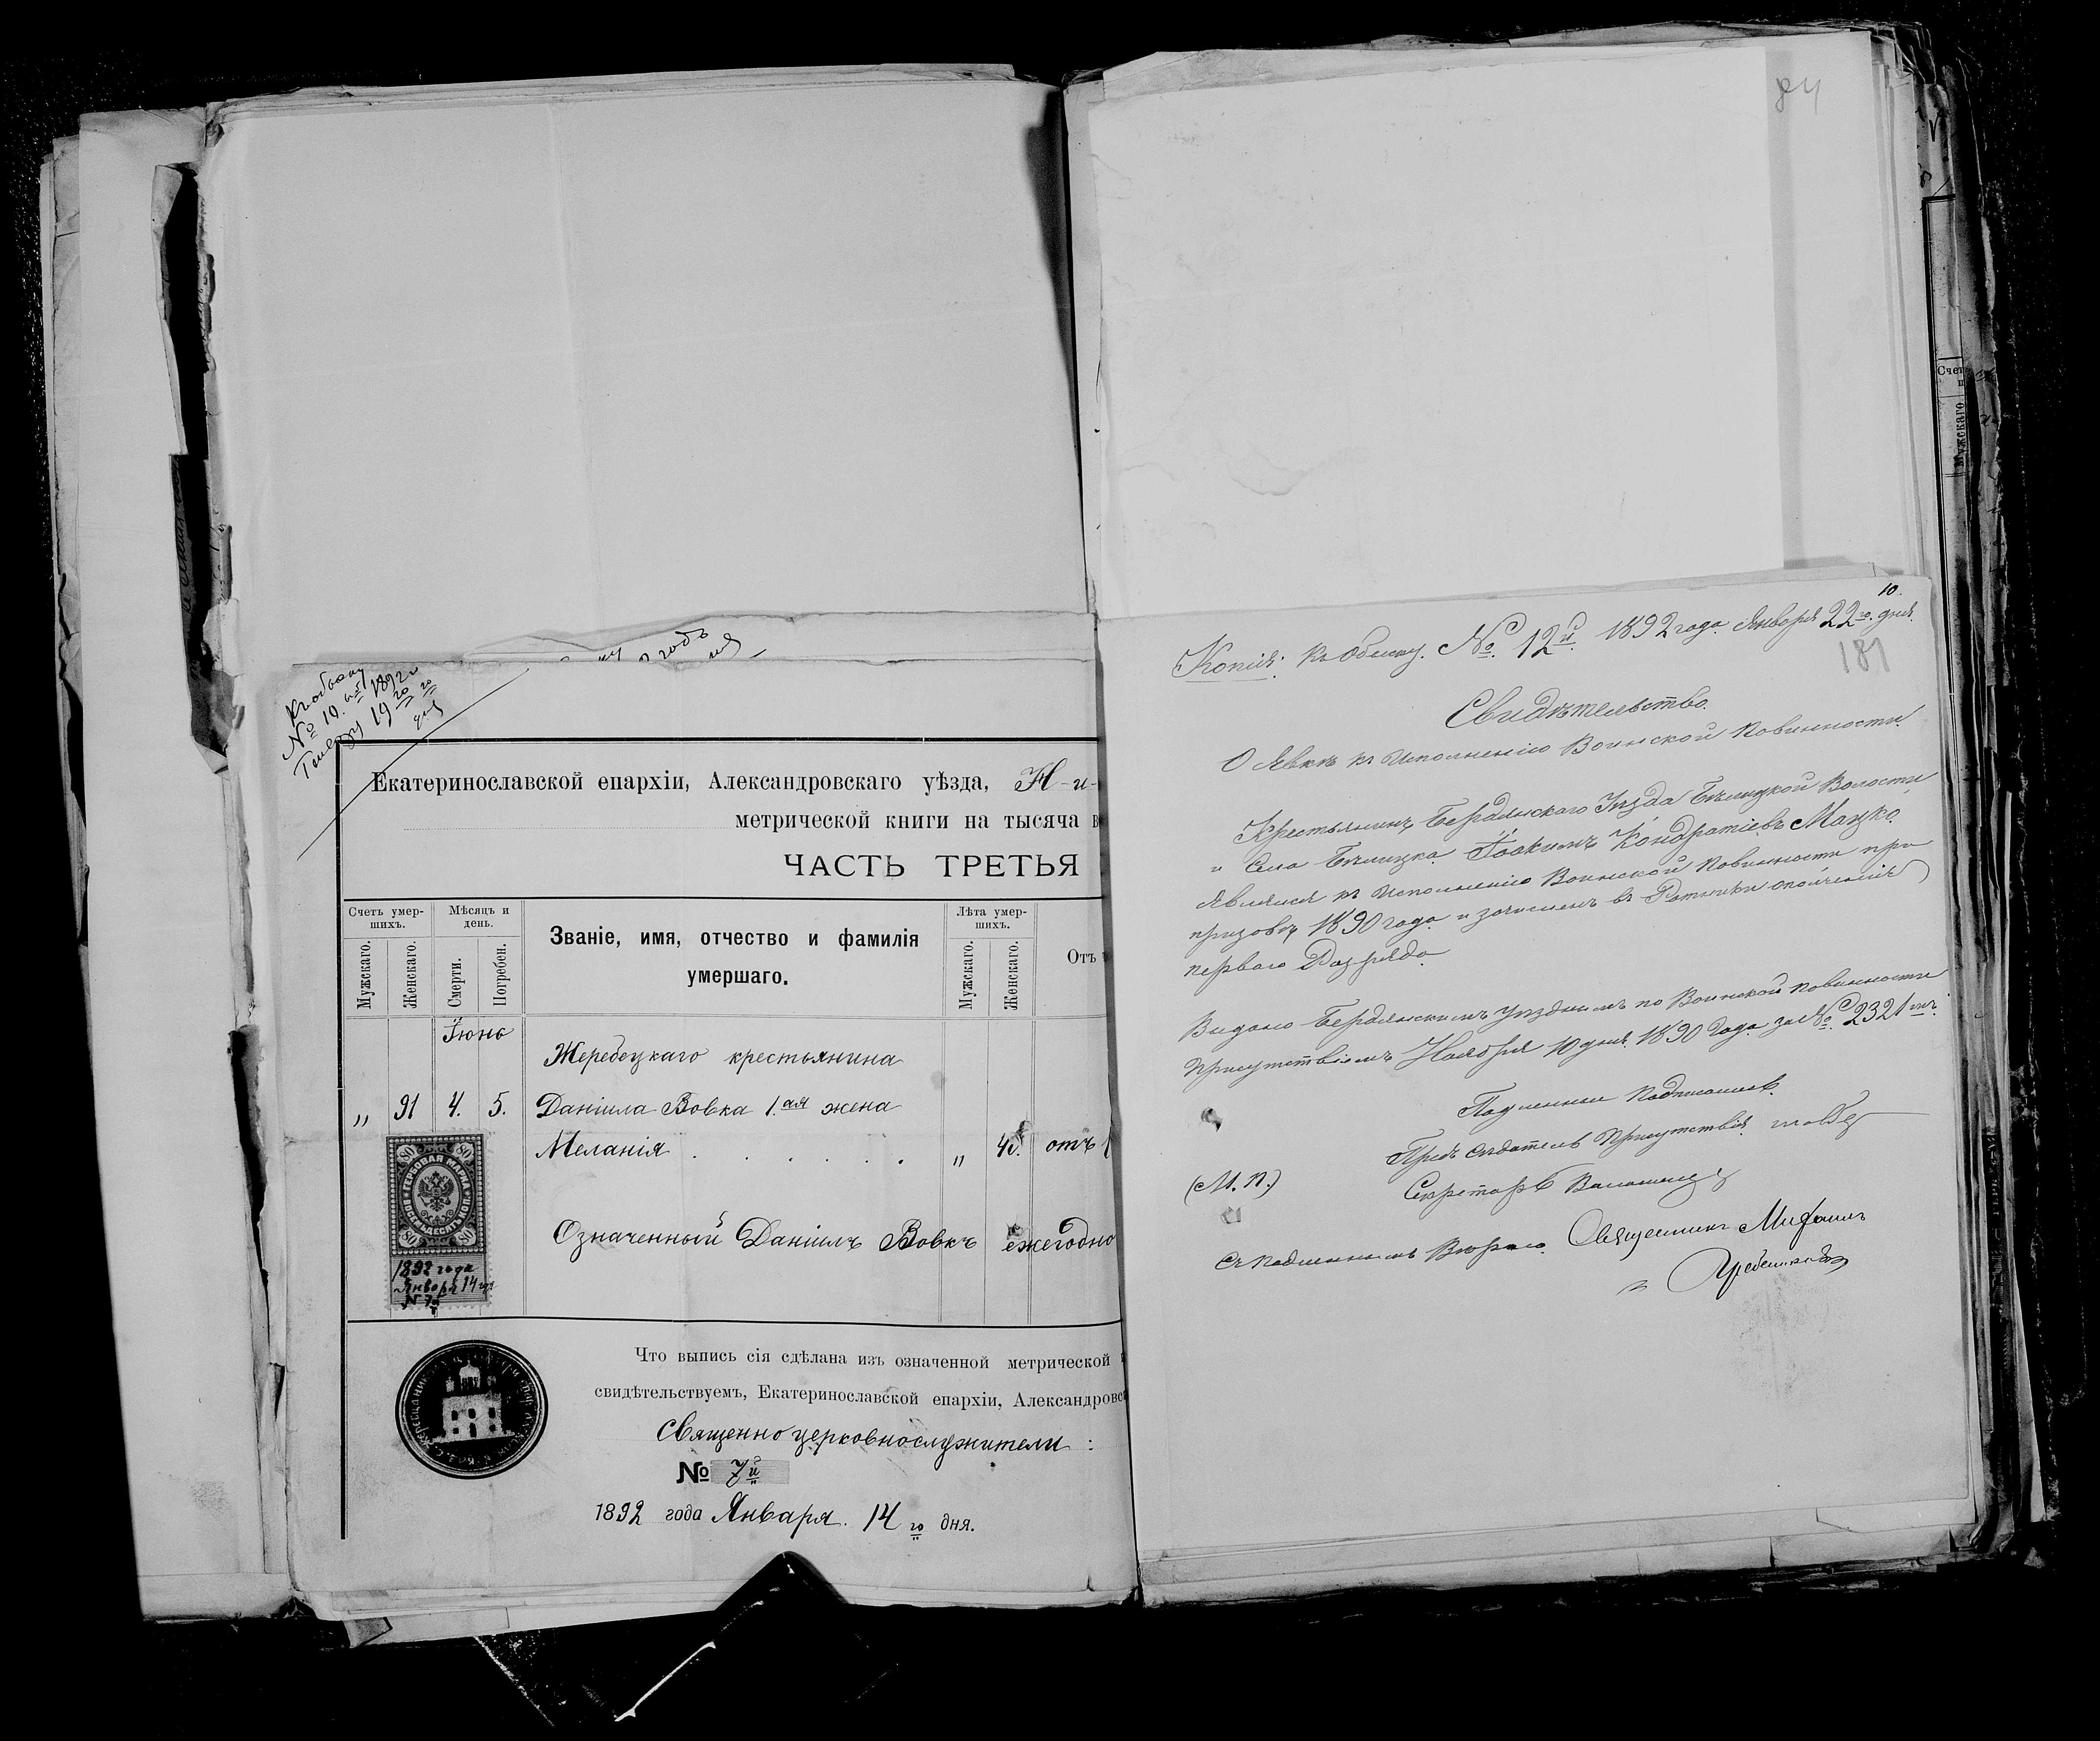 къ обыску
№ 10.ый 1892го
Генваря 19го дня
Екатеринославской епархіи, Александровскаго уѣзда, Н-и-
метрической книги на тысяча в
ЧАСТЬ ТРЕТЬЯ
Счетъ умершихъ.
Мужскаго.
Женскаго.
Мѣсяцъ и день.
Смерти.
Погребен.
Званіе, имя, отчество и фамилія
умершаго.
Лѣта умершихъ.
Мужскаго.
Женскаго.
Отъ
Іюнь
Жеребецкаго крестьянина
„ 91 4. 5. Даніила Вовка 1.ая жена
Меланія . . . . . . „ отъ
ГЕРБОВАЯ МАРКА
80
1892 года
Января 14го
№ 7й
Означенный Даніилъ Вовкъ ежегодно
Что выпись сія сдѣлана изъ означенной метрической
свидѣтельствуемъ, Екатеринославской епархіи, Александровс
Священно церковнослужители:
№ 7й
1892 года Января. 14го дня.
84
10.
Копія: Къ Обыску. №. 12й. 1892 года Января 22го. дня.
181
Свидѣтельство.
О Явкѣ къ Исполненію Воинской Повинности.
Крестьянинъ Бердянскаго Уѣзда Бѣлицкой Волости
и Села Бѣлицка Іоакимъ Кондратіевъ Мацко
явился къ Исполненію Воинской Повинности при
призовѣ 1890 года и зачисленъ въ Ратники ополченія
перваго Разряда
Выдано Бердянскимъ Уѣзднымъ по Воинской повинности
Присутствіемъ Ноября 10 дня 1890 Года за №. 2321мъ.
Подлинный Подписали
Предсѣдатель Присутствія
(М. П.)
Секретарь
Съ Подлиннымъ Вѣрно. Священникъ Михаилъ
Гребинскій